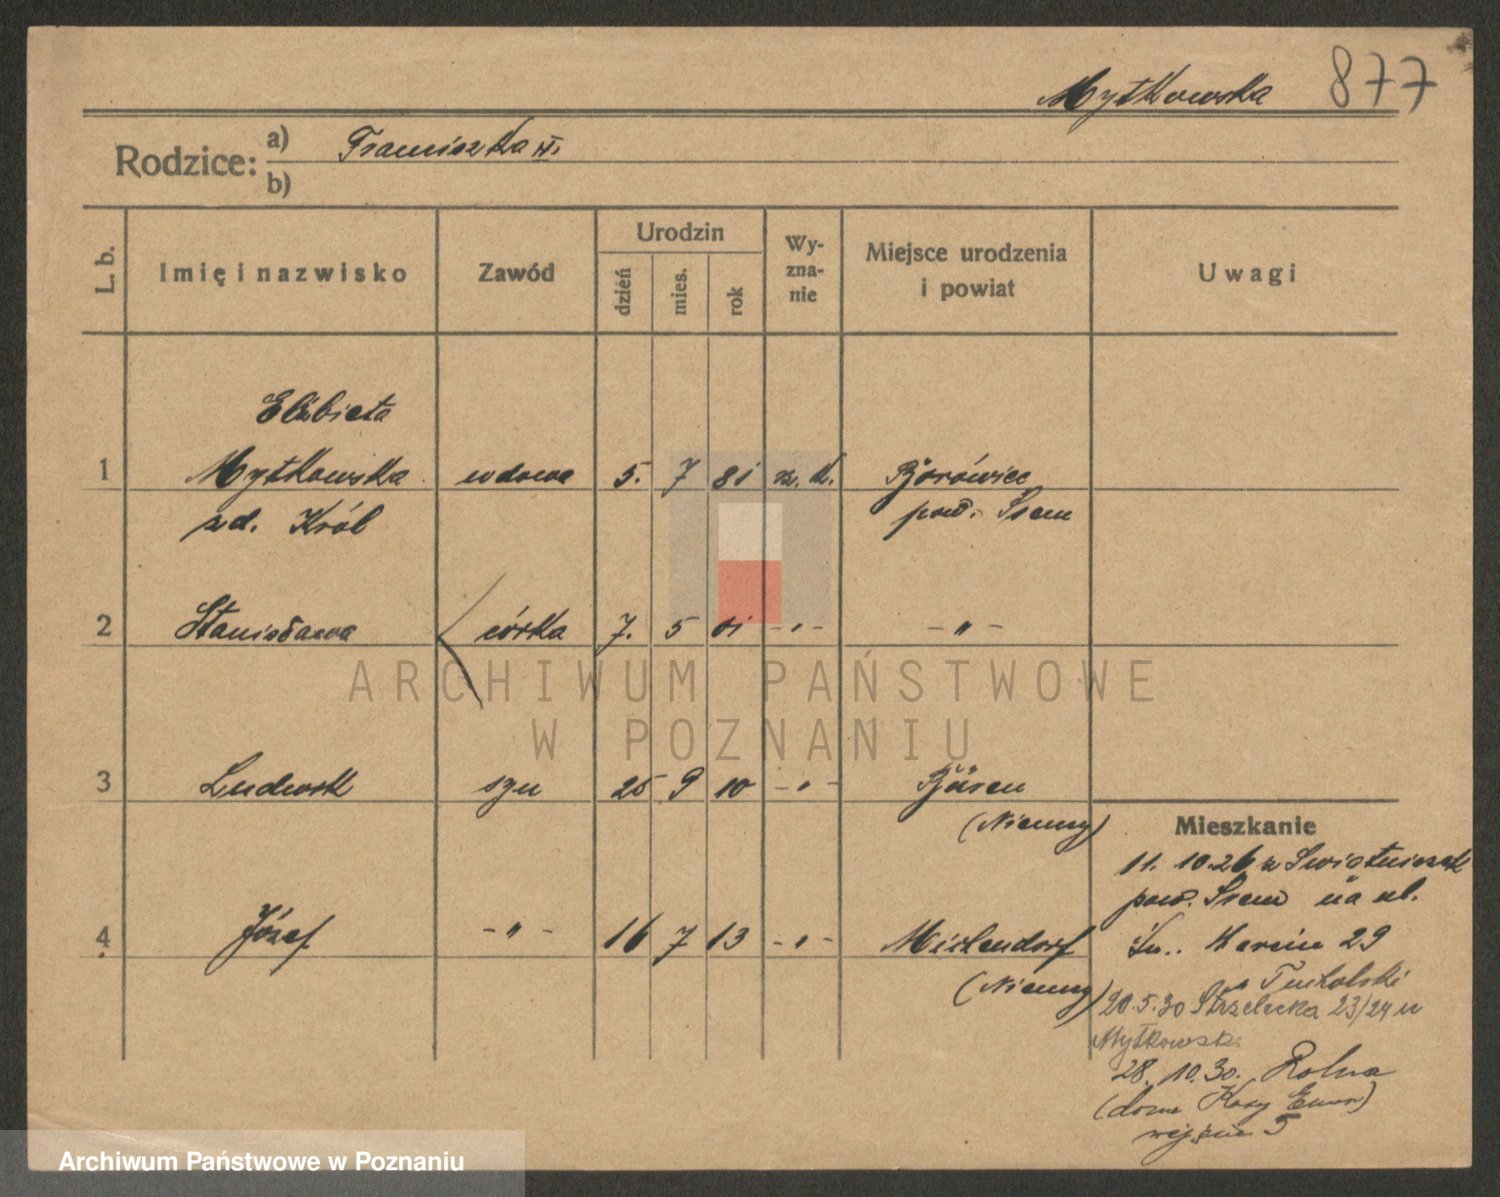 Mytkowska 877
Rodzice: a) Franciszka II.
b)
L. b. Imię i nazwisko Zawód Urodzin dzień mies. rok Wy-zna-nie Miejsce urodzenia i powiat Uwagi
Elżbieta
1 Mytkowska wdowa 5. 7 81 rz. k. Bjorówiec
zd. Król pow. Śrem
2 Stanisława córka 7. 5 01 -"- -"-
ARCHIWUM PAŃSTWOWE
W POZNANIU
3 Ludwik syn 25 9 10 -"- Büren
(Niemcy)
Mieszkanie
11. 10.26 z Swiątniczek
pow. Śrem na ul.
4 Józef -"- 16 7 13 -"- Michendorf
Św. Marcin 29
(Niemcy)
u Tucholski
20.5.30 Strzelecka 23/24 u
Mytkowski
28.10.30. Rolna
(domy Kasy Emer)
wejście 5
Archiwum Państwowe w Poznaniu